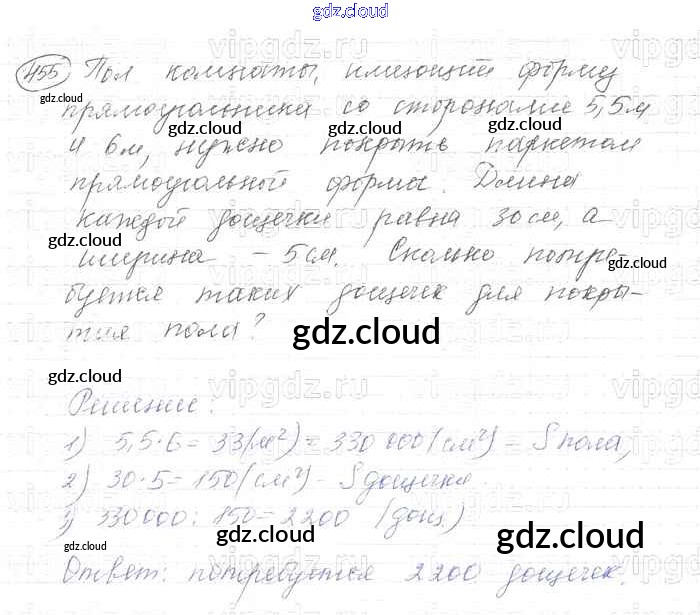 gdz.cloud
455 Пол комнаты, имеющий форму
gdz.cloud
прямоугольника со сторонами 5,5м
gdz.cloud gdz.cloud
и 6м, нужно покрыть паркетом
прямоугольной формы. Длина
каждой дощечки равна 30см, а
gdz.cloud
ширина – 5см. Сколько потре-
gdz.cloud
буется таких дощечек для покры-
тия пола?
gdz.cloud
gdz.cloud
Решение:
1) 5,5·6=33(м²)=330 000(см²)= S пола,
2) 30·5=150(см²)- S дощечки
3) 330000:150=2200 (дощ.)
gdz.cloud gdz.cloud gdz.cloud
Ответ: потребуется 2200 дощечек.